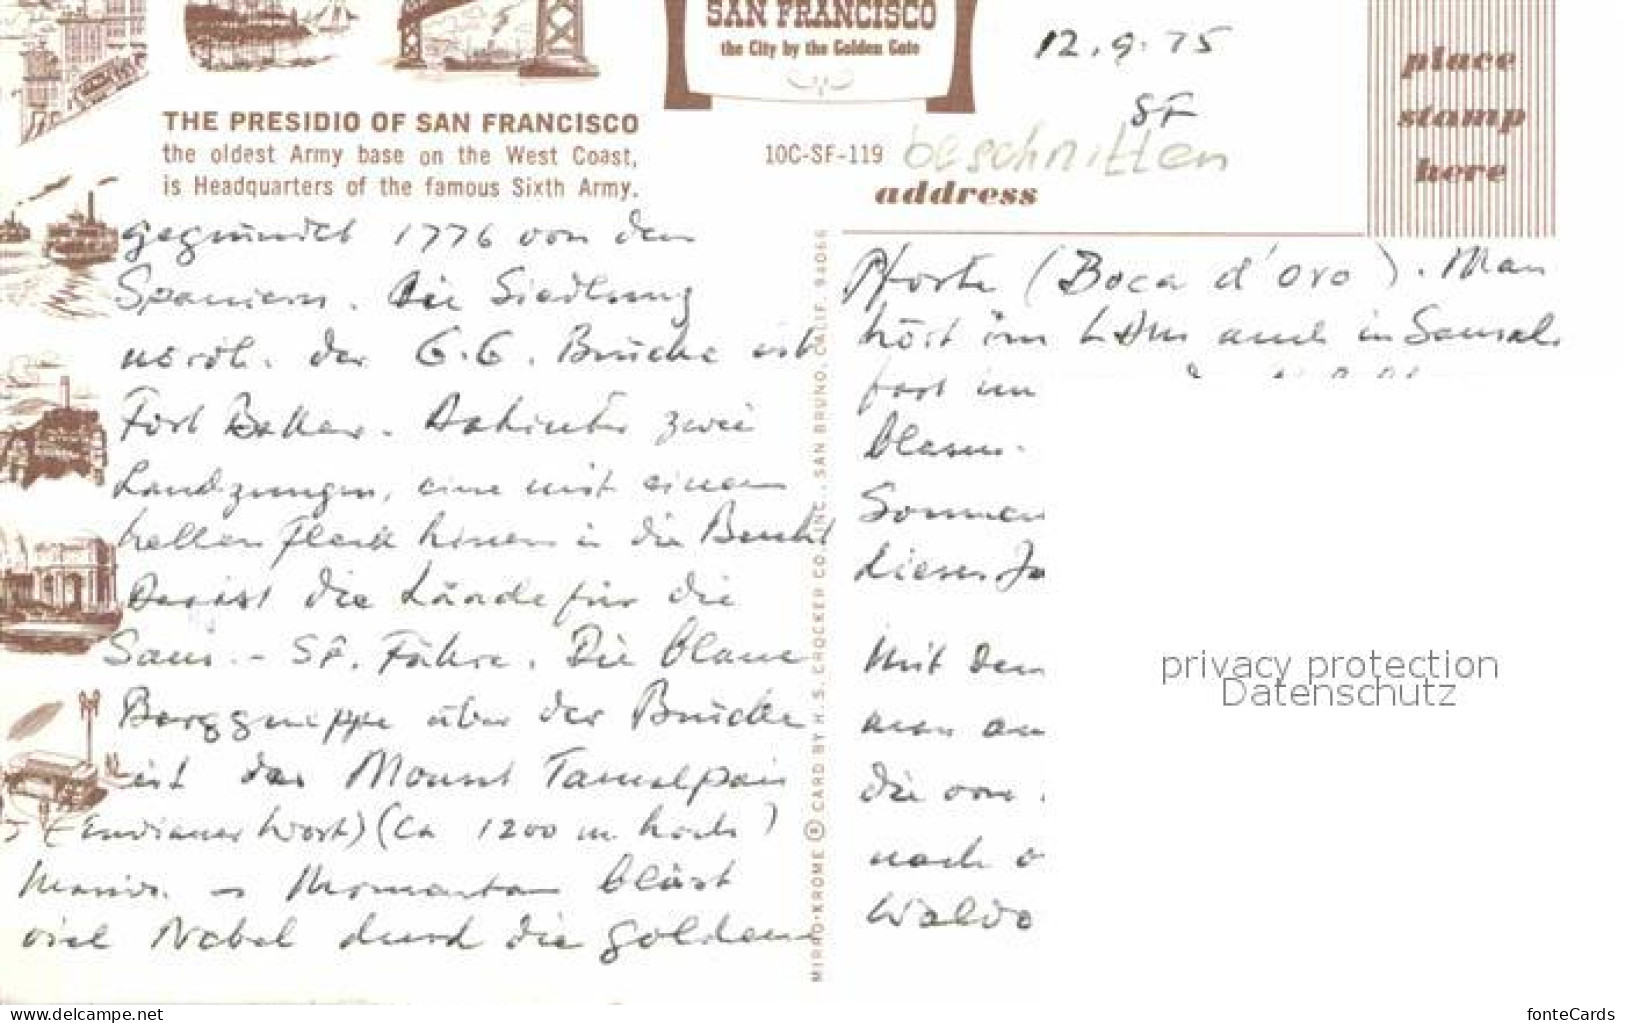 SAN FRANCISCO
the City by the Golden Gate
12.9.75
SF
place
stamp
here
THE PRESIDIO OF SAN FRANCISCO
the oldest Army base on the West Coast,
is Headquarters of the famous Sixth Army.
10C-SF-119
beschnitten
address
gegründet 1776 von den
Spaniern. Die Siedlung
nördl. der G.G. Brücke ist
Fort Baker. Dahinter zwei
Landzungen, eine mit einem
hellen Fleck hinein in die Bucht
Das ist die Lände für die
Saus. - SF. Fähre. Die blaue
Berggruppe über der Brücke
ist der Mount Tamalpais
(Indianer Wort) (ca 1200 m hoch)
Momentan bläst
viel Nebel durch die goldene
MIRRO-KROME ® CARD BY H. S. CROCKER CO. INC., SAN BRUNO, CALIF. 94066
Pforte (Boca d'oro). Man
hört im Lärm auch in Sausal.
fort im
blasen.
Sommer
dieses Ja
Mit dem
man au
die von
nach o
Waldo
privacy protection
Datenschutz
www.delcampe.net
fonteCards